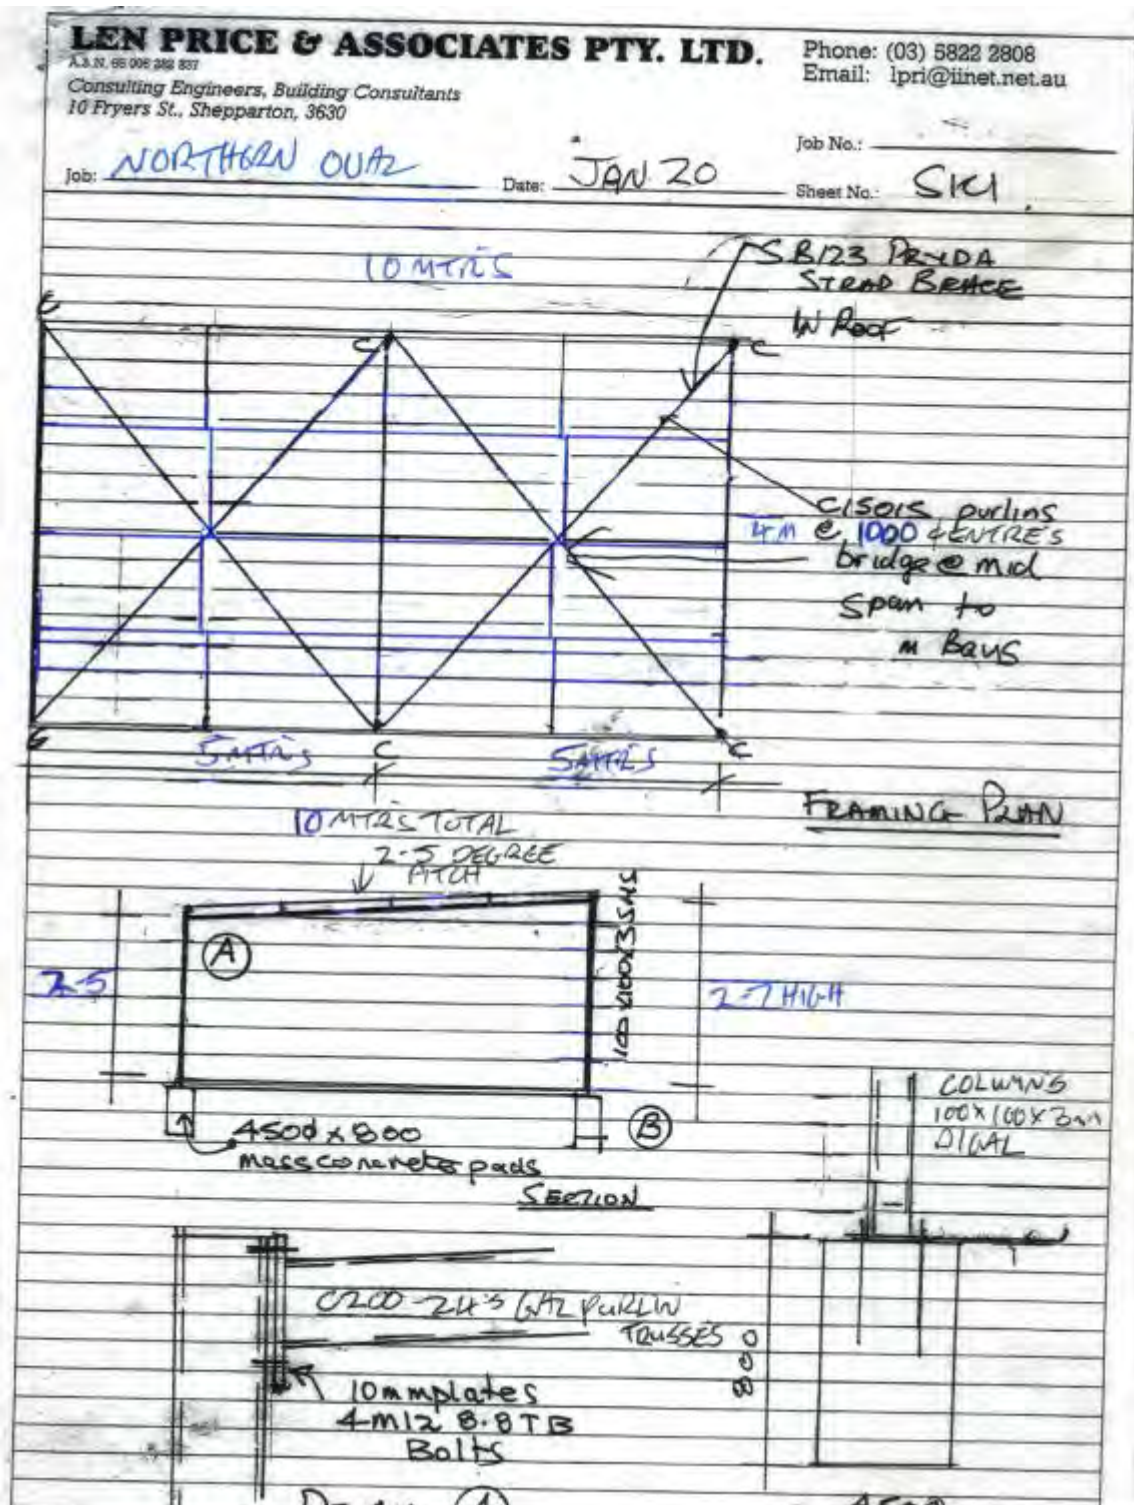 LEN PRICE & ASSOCIATES PTY. LTD.
A.B.N. 65 006 282 837
Consulting Engineers, Building Consultants
10 Fryers St., Shepparton, 3630
Phone: (03) 5822 2808
Email: lpri@iinet.net.au
Job No.:
Job: NORTHERN OVAL
Date: JAN 20
Sheet No.: SK1
10 MTR'S
SB123 PRYDA
STRAP BRACE
IN ROOF
C
C
C
C15015 purlins
4M @ 1000 CENTRE'S
bridge @ mid
Span to
Bays
C
C
5 MTR'S
5 MTR'S
FRAMING PLAN
10 MTRS TOTAL
2-5 DEGREE
PITCH
A
2-5
100x100x3 SHS
2-7 HIGH
450Ø x 800
mass concrete pads
B
SECTION
COLUMNS
100x100x3mm
C200-24's GAL PURLIN
TRUSSES
800
10mm plates
4-M12 8.8 TB
Bolts